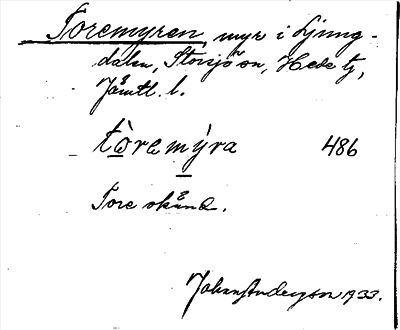 Toremyren, myr i Ljung-
dalen, Storsjö sn, Hede tg,
Jämtl. l.
tòremýra 486
Tore okänd.
Johan Anderson 1933.